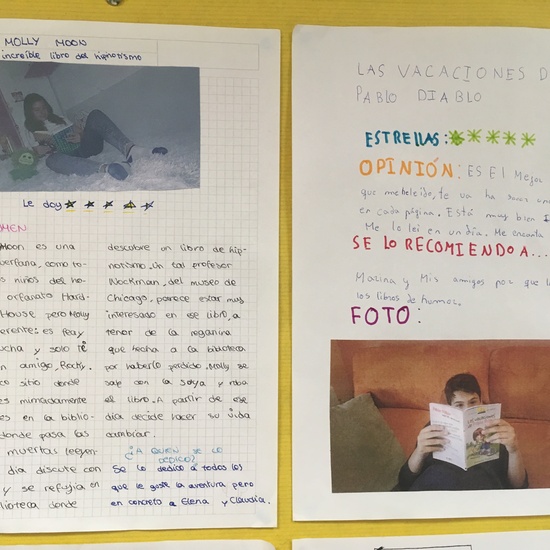 MOLLY MOON
increíble libro del hipnotismo
Le doy
MEN
Moon es una
uerfana, como to-
s niños del ho-
orfanato Hard-
House pero Molly
erente: es fea y
ucha y solo tê
n amigo, Rocky.
co sitio donde
es mínimamente
es en la biblio-
donde pasa las
muertas leyen-
día discute con
y se refugia en
lioteca donde
descubre un libro de hip-
notismo. Un tal profesor
Nockman, del museo de
Chicago, parece estar muy
interesado en ese libro, a
tenor de la regañina
que hecha a la biblioteca
por haberlo perdido. Molly se
sale con la suya y roba
el libro. A partir de ese
día decide hacer su vida
cambiar.
¿A QUIEN SE LO
DEDICO?
Se lo dedico a todos los
que le guste la aventura pero
en concreto a Elena y Claudia.
LAS VACACIONES D
PABLO DIABLO
ESTRELLAS:
OPINIÓN: ES El Mejor
que me he leido, te va ha sacar una
en cada página. Está muy bien
Me lo leí en un día. Me encanta
SE LO RECOMIENDO A...
Marina y Mis amigos por que le
los libros de humor.
FOTO: